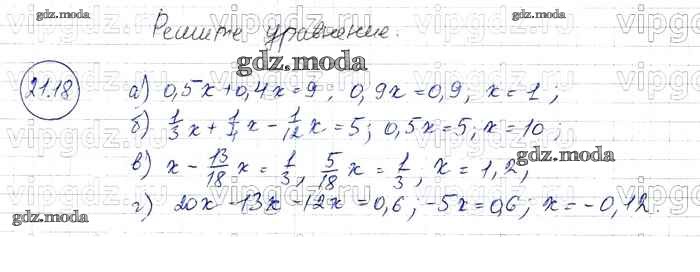 Решите уравнение.
21.18
а) 0,5x+0,4x=9; 0,9x=0,9, x=1;
б) 1/3 x + 1/4 x - 1/12 x = 5; 0,5x=5; x=10;
в) x - 13/18 x = 1/3, 5/18 x = 1/3, x = 1,2;
г) 20x - 13x - 12x = 0,6; -5x=0,6; x=-0,12.
gdz.moda
gdz.moda
gdz.moda
gdz.moda
gdz.moda
vipgdz.com